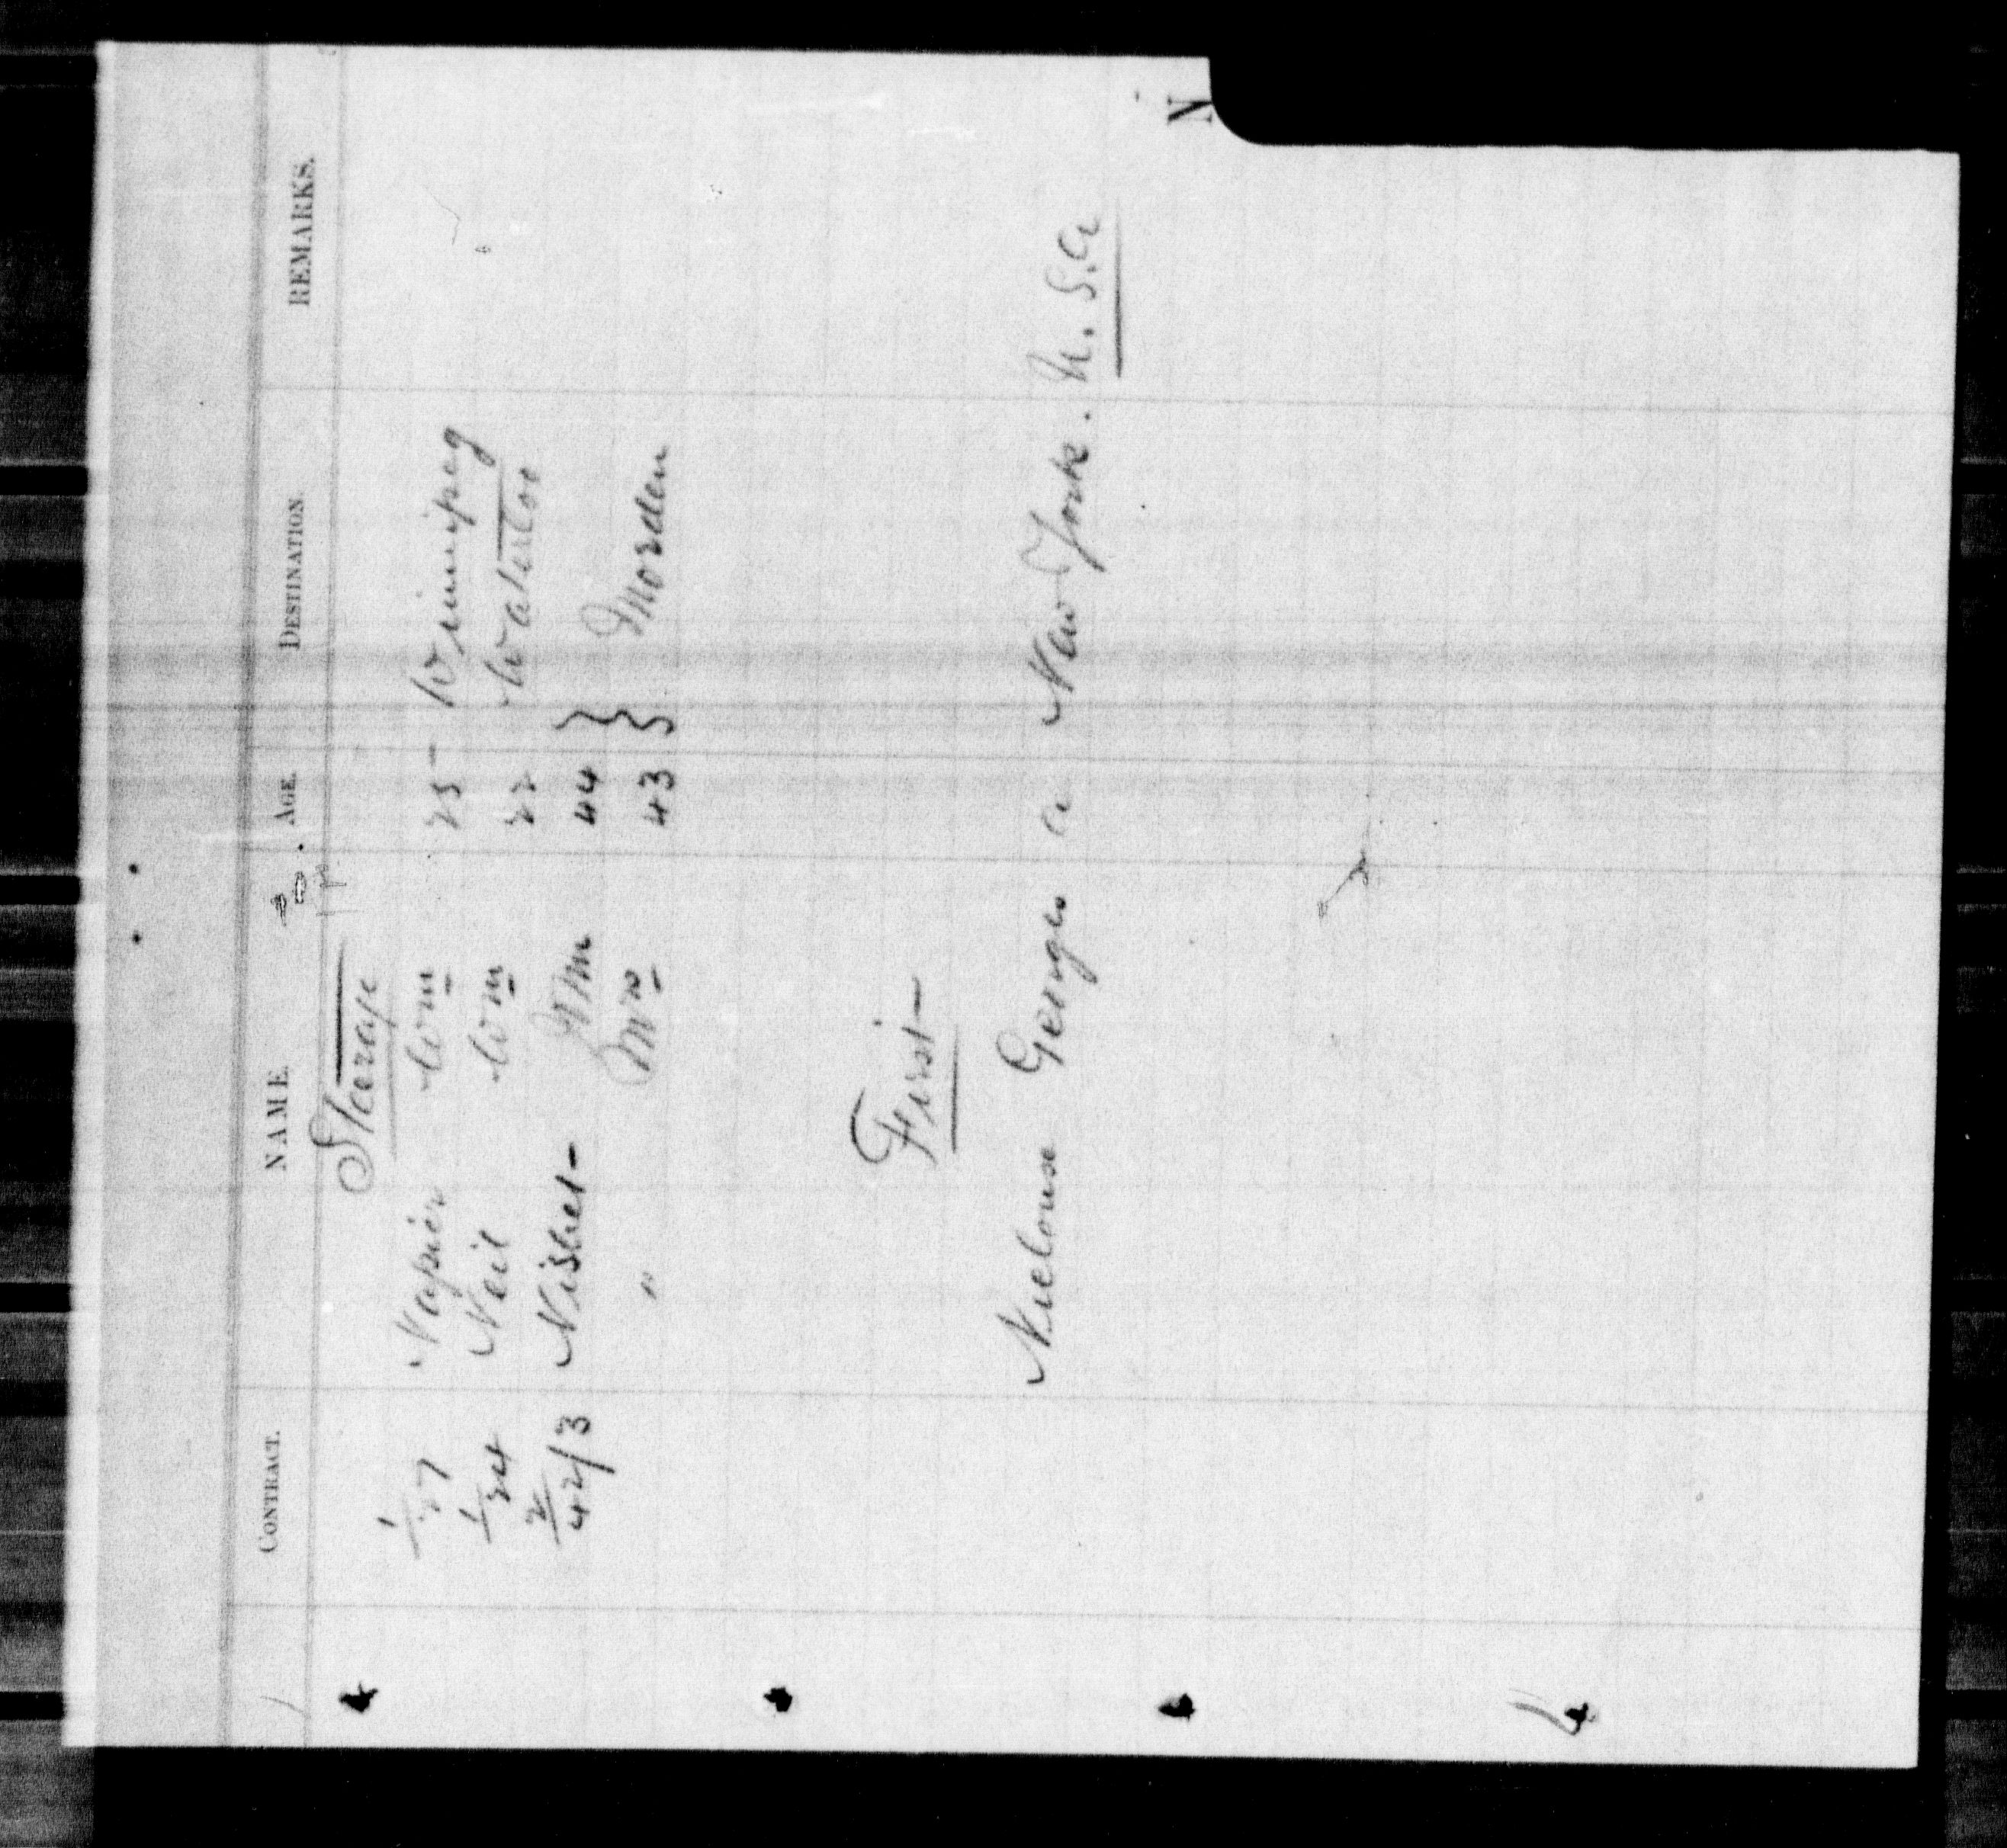 N
CONTRACT. NAME. AGE. DESTINATION REMARKS.
Steerage
1/27 Napier Wm 25 - Winnipeg
1/34 Neil Wm 22 Waterloo
2/42/3 Nisbet - Wm 44 } Morden
" Mrs 43 }
First -
George a New York. U.S.a